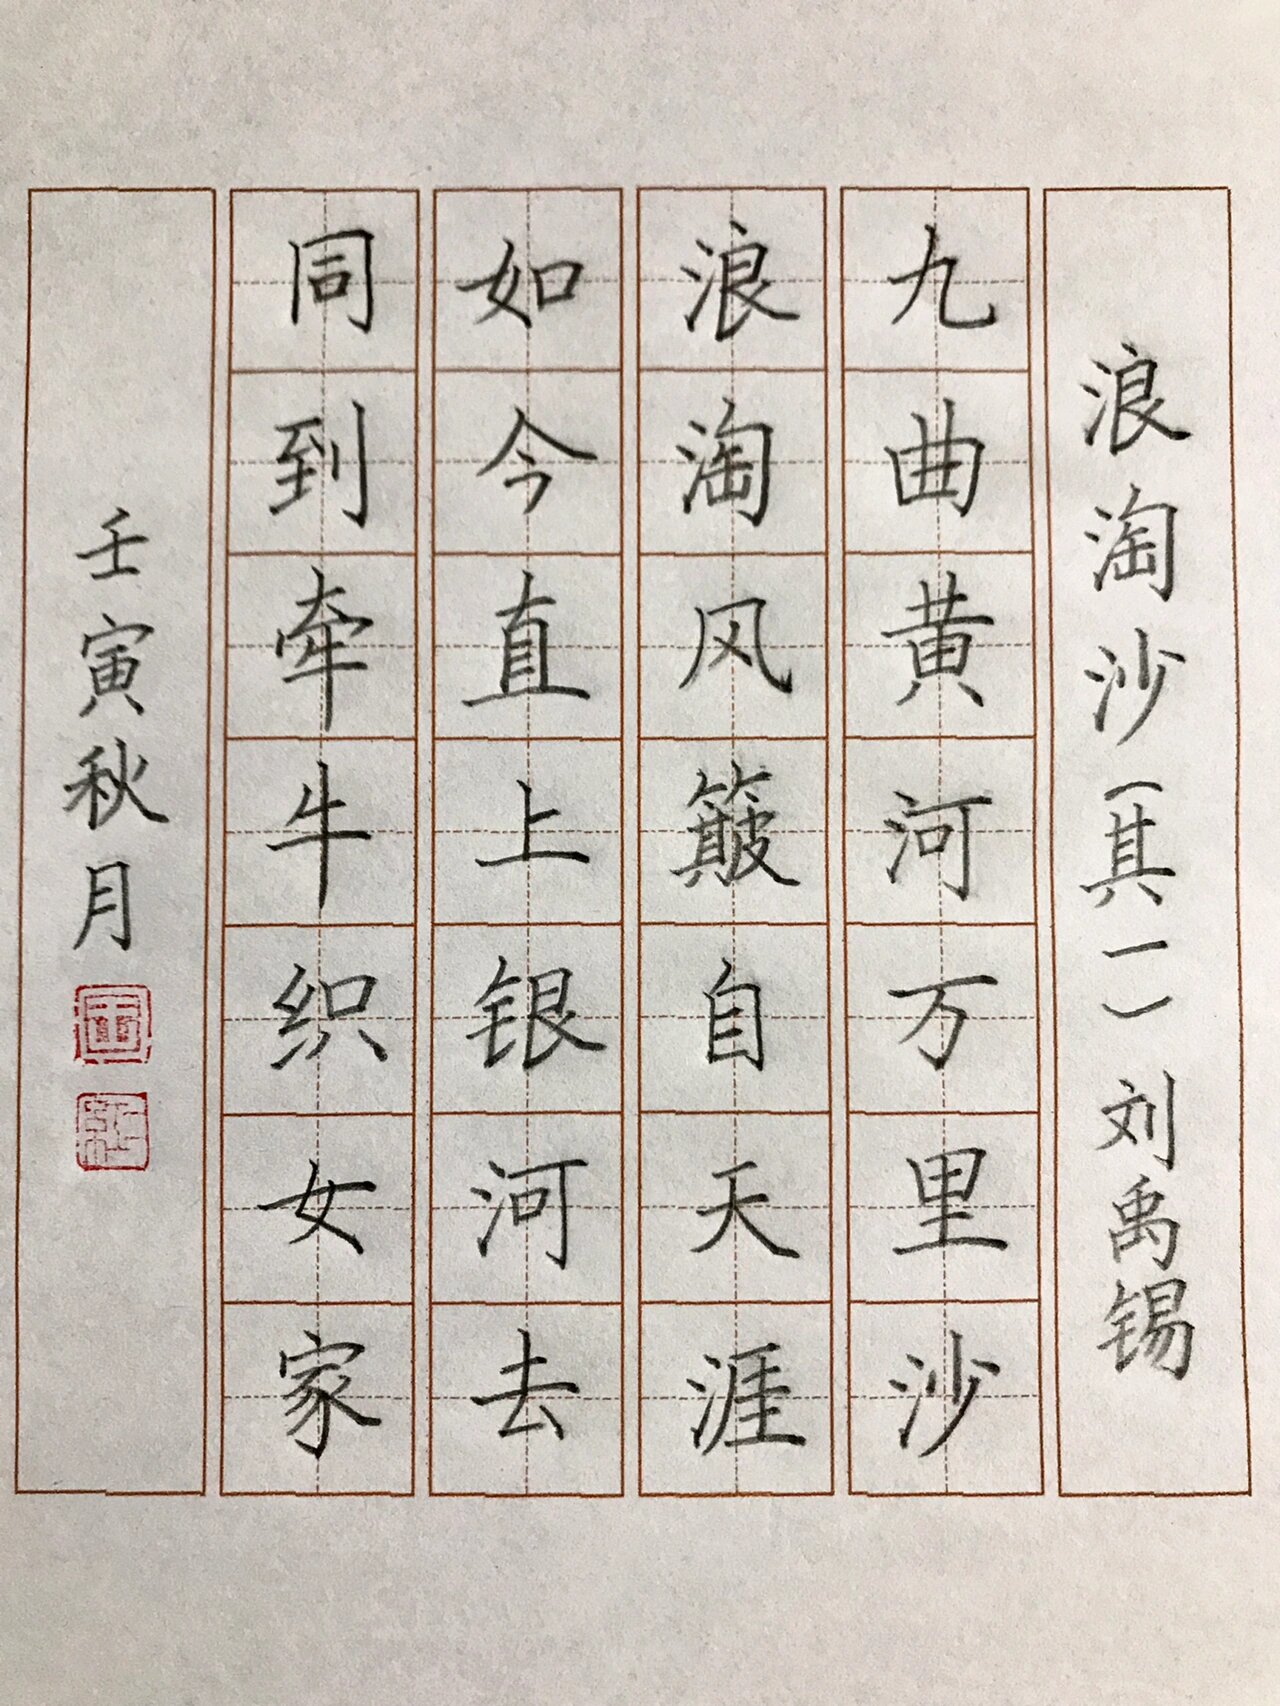 浪淘沙（其一）刘禹锡
九曲黄河万里沙
浪淘风簸自天涯
如今直上银河去
同到牵牛织女家
壬寅秋月